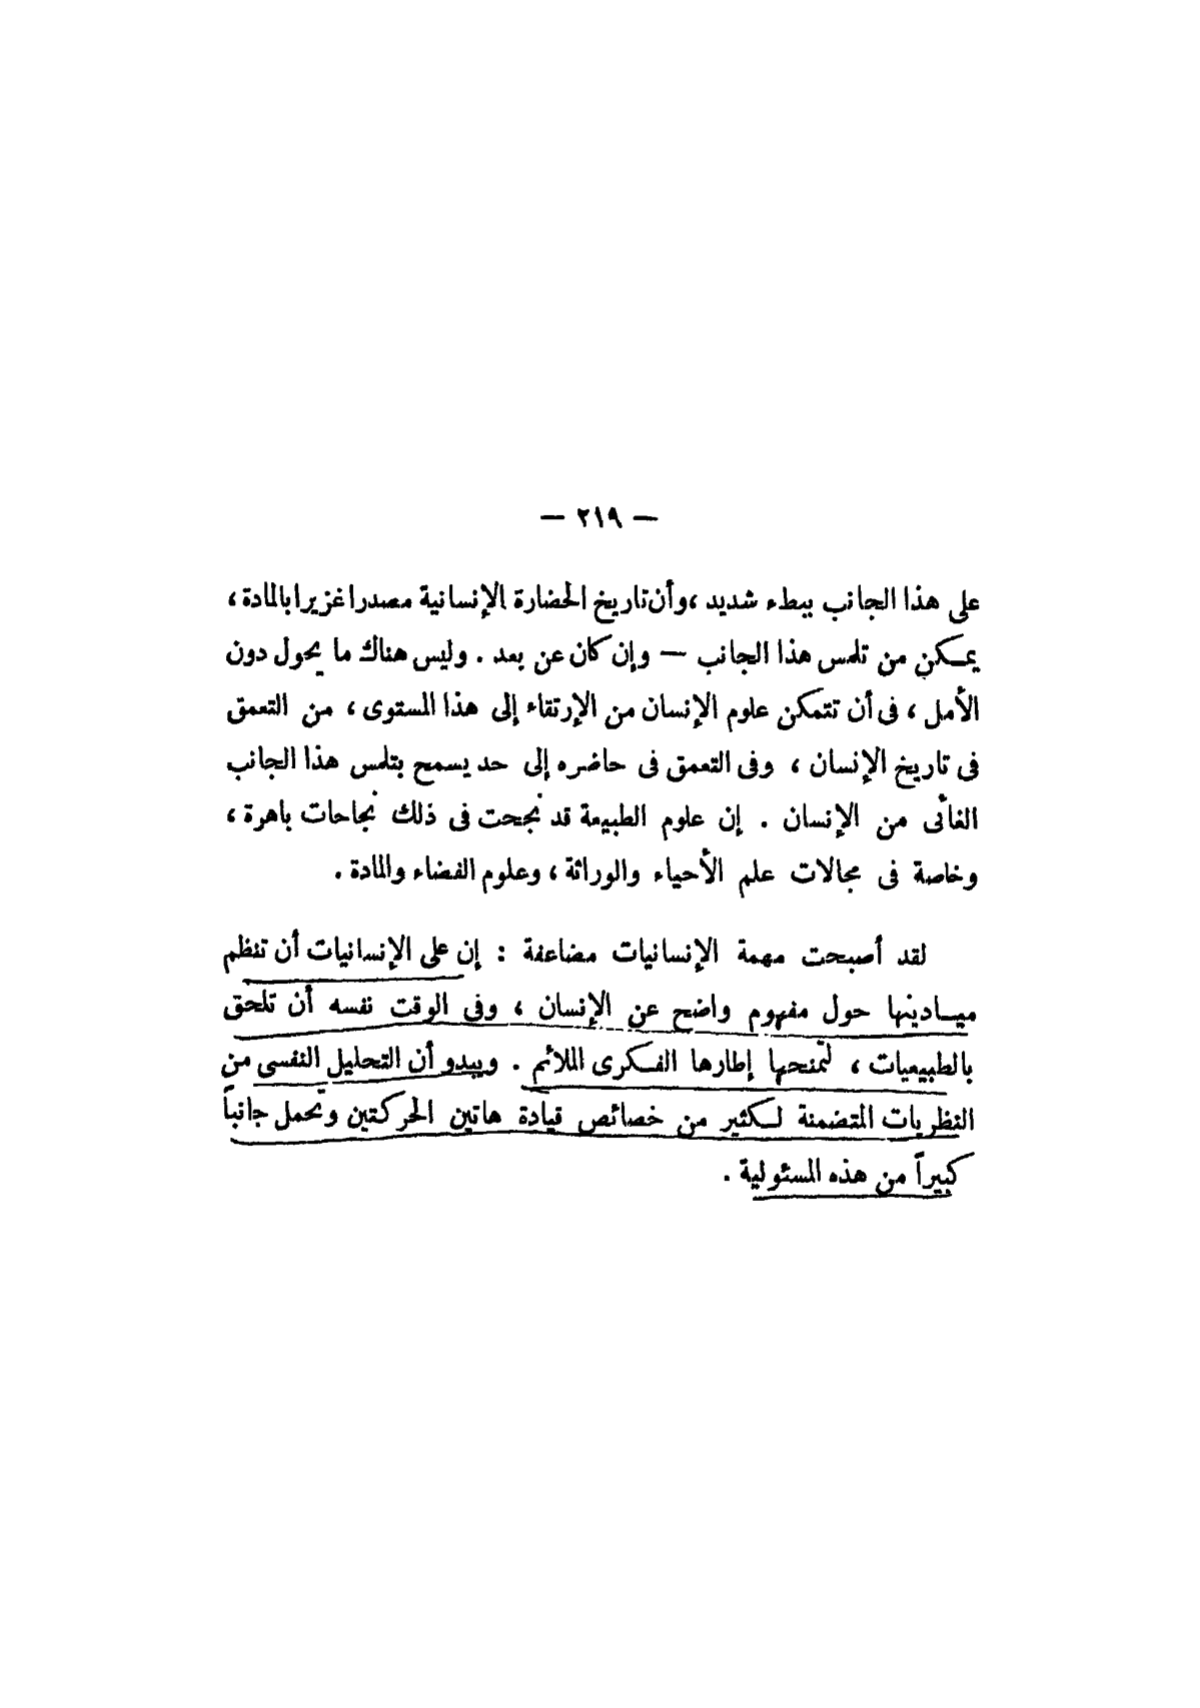 — ٢١٩ —
على هذا الجانب ببطء شديد ، وأن تاريخ الحضارة الإنسانية مصدرا غزيرا بالمادة ،
يمكن من تلمس هذا الجانب — وإن كان عن بعد . وليس هناك ما يحول دون
الأمل ، فى أن تتمكن علوم الإنسان من الإرتقاء إلى هذا المستوى ، من التعمق
فى تاريخ الإنسان ، وفى التعمق فى حاضره إلى حد يسمح بتلمس هذا الجانب
الغائى من الإنسان . إن علوم الطبيعة قد نجحت فى ذلك نجاحات باهرة ،
وخاصة فى مجالات علم الأحياء والوراثة ، وعلوم الفضاء والمادة .
لقد أصبحت مهمة الإنسانيات مضاعفة : إن على الإنسانيات أن تنظم
ميادينها حول مفهوم واضح عن الإنسان ، وفى الوقت نفسه أن تلحق
بالطبيعيات ، لتمنحها إطارها الفكرى الملائم . ويبدو أن التحليل النفسى من
النظريات المتضمنة لكثير من خصائص قيادة هاتين الحركتين وتحمل جانباً
كبيراً من هذه المسئولية .